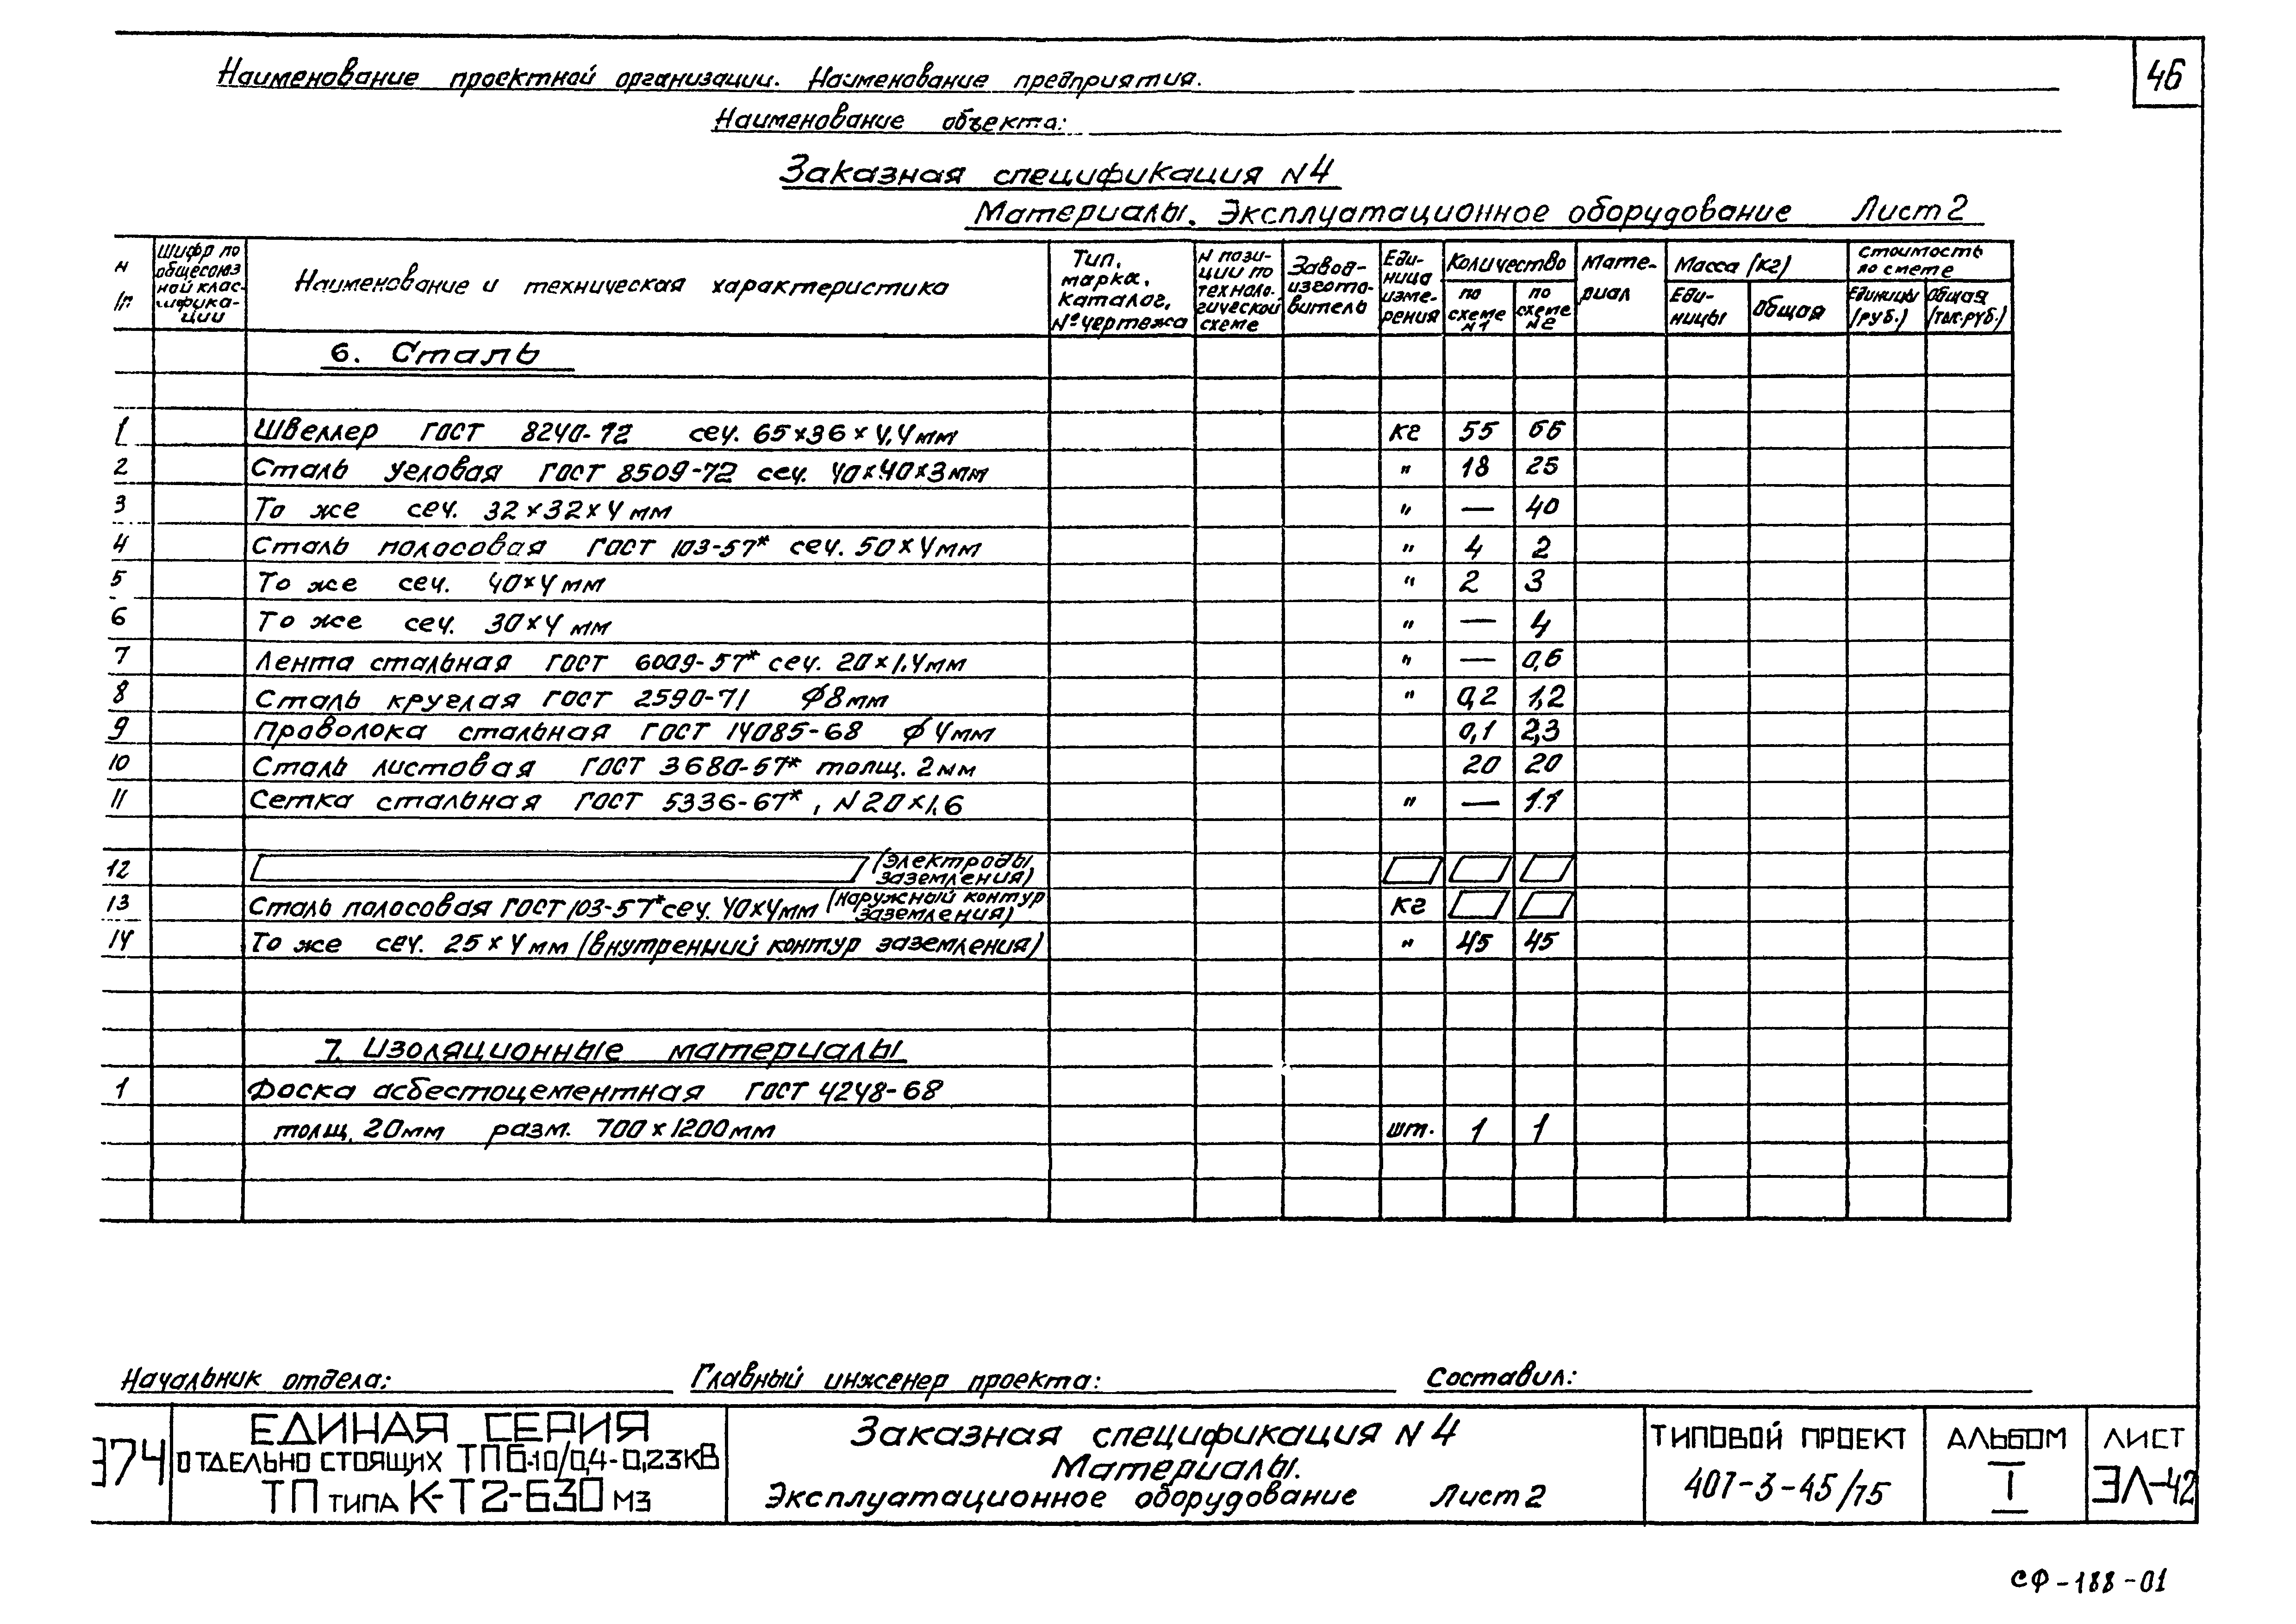 46
Наименование проектной организации. Наименование предприятия.
Наименование объекта:
Заказная спецификация N4
Материалы. Эксплуатационное оборудование Лист 2
N п/п
Шифр по общесоюзной классификации
Наименование и техническая характеристика
Тип, марка, каталог, № чертежа
N позиции по технологической схеме
Завод-изготовитель
Единица измерения
Количество
по схеме N1
по схеме N2
Материал
Масса (кг)
Единицы
Общая
Стоимость по смете
Единицы (руб.)
Общая (тыс.руб.)
6. Сталь
1 Швеллер ГОСТ 8240-72 сеч. 65×36×4,4мм кг 55 66
2 Сталь угловая ГОСТ 8509-72 сеч. 40×40×3мм " 18 25
3 То же сеч. 32×32×4 мм " — 40
4 Сталь полосовая ГОСТ 103-57* сеч. 50×4мм " 4 2
5 То же сеч. 40×4 мм " 2 3
6 То же сеч. 30×4 мм " — 4
7 Лента стальная ГОСТ 6009-57* сеч. 20×1.4мм " — 0,6
8 Сталь круглая ГОСТ 2590-71 ф8мм " 0,2 1,2
9 Проволока стальная ГОСТ 14085-68 ф4мм 0,1 2,3
10 Сталь листовая ГОСТ 3680-57* толщ. 2мм 20 20
11 Сетка стальная ГОСТ 5336-67*, N20×1.6 " — 1.1
12 (электроды заземления)
13 Сталь полосовая ГОСТ 103-57* сеч. 40×4мм (наружный контур заземления) кг
14 То же сеч. 25×4мм (внутренний контур заземления) " 45 45
7. Изоляционные материалы
1 Доска асбестоцементная ГОСТ 4248-68
толщ. 20мм разм. 700×1200мм шт. 1 1
Начальник отдела: Главный инженер проекта: Составил:
374
ЕДИНАЯ СЕРИЯ
ОТДЕЛЬНО СТОЯЩИХ ТП 6-10/0,4-0,23КВ
ТП ТИПА К-Т2-630 М3
Заказная спецификация N4
Материалы.
Эксплуатационное оборудование Лист 2
ТИПОВОЙ ПРОЕКТ
407-3-45/75
АЛЬБОМ
I
ЛИСТ
ЭЛ-42
СФ-188-01